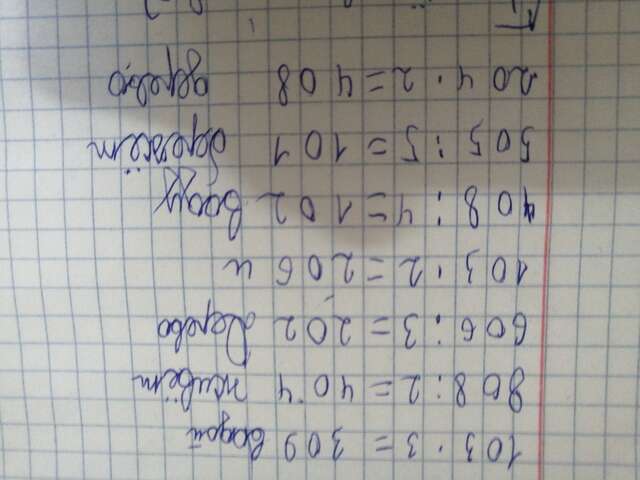 103 · 3 = 309 водой
808 : 2 = 404 живёт
606 : 3 = 202 Дерево
103 · 2 = 206 и
408 : 4 = 102 воду
505 : 5 = 101 бережёт
204 · 2 = 408 дерево